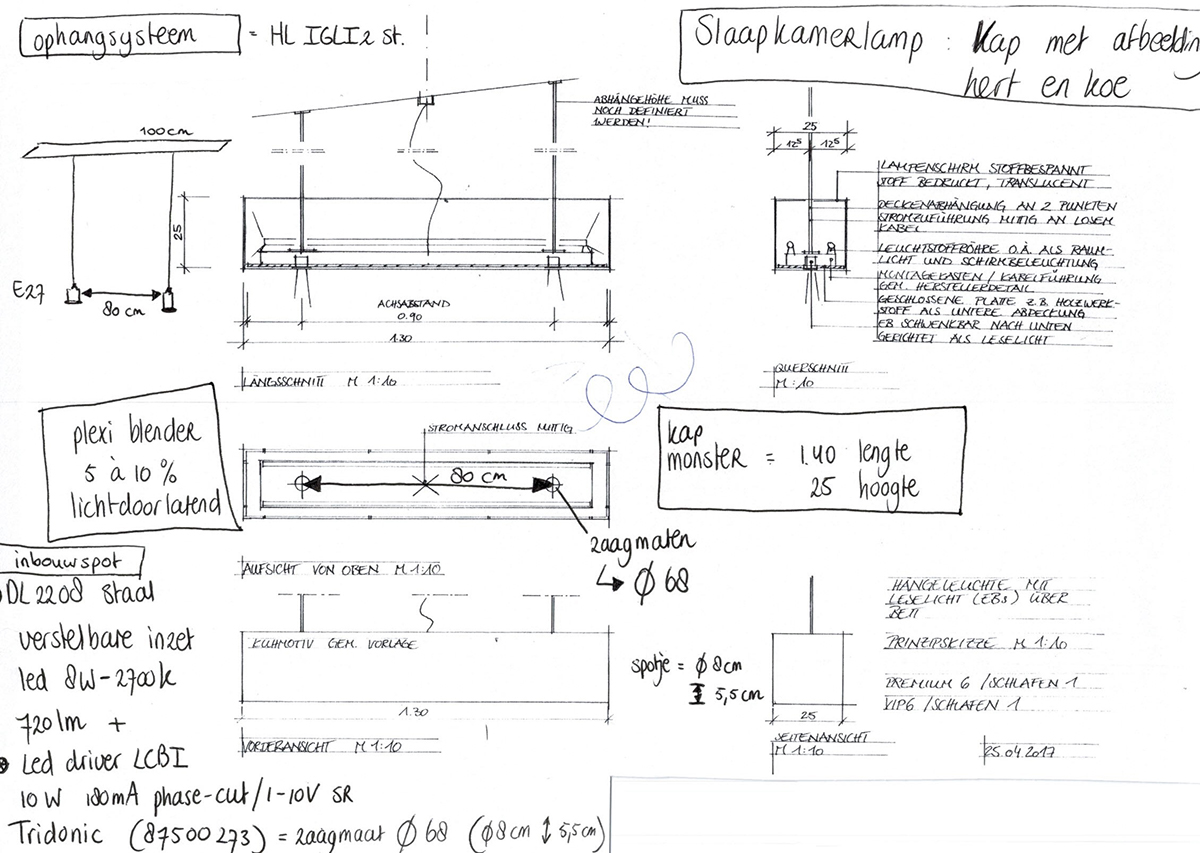 ophangsysteem = HL IGLI2 St.
Slaapkamerlamp : Kap met afbeeldin
hert en koe
100cm
E27
80 cm
ABHÄNGEHÖHE MUSS
NOCH DEFINIERT
WERDEN!
25
ACHSABSTAND
0.90
1.30
LÄNGSSCHNITT M 1:10
25
12⁵ 12⁵
LAMPENSCHIRM STOFFBESPANNT
STOFF BEDRUCKT, TRANSLUCENT
DECKENABHÄNGUNG AN 2 PUNKTEN
STROMZUFÜHRUNG MITTIG AN LOSEM
KABEL
LEUCHTSTOFFRÖHRE O.Ä. ALS RAUM-
LICHT UND SCHIRMBELEUCHTUNG
MONTAGEKASTEN / KABELFÜHRUNG
GEM. HERSTELLERDETAIL
GESCHLOSSENE PLATTE Z.B. HOLZWERK-
STOFF ALS UNTERE ABDECKUNG
EB SCHWENKBAR NACH UNTEN
GERICHTET ALS LESELICHT
QUERSCHNITT
M 1:10
plexi blender
5 à 10 %
lichtdoorlatend
STROMANSCHLUSS MITTIG
80 cm
zaagmaten
↳ Ø 68
AUFSICHT VON OBEN M 1:10
kap
monster = 1.40 lengte
25 hoogte
inbouwspot
DL 2208 Staal
verstelbare inzet
led 8W-2700k
720lm +
Led driver LCBI
10 W 180mA phase-cut/1-10V SR
Tridonic (87500273) = zaagmaat Ø 68 (Ø8cm ↕ 5,5cm)
KUHMOTIV GEM. VORLAGE
1.30
VORDERANSICHT M 1:10
spotje = Ø 8cm
↕ 5,5 cm
25
SEITENANSICHT
M 1:10
HÄNGELEUCHTE MIT
LESELICHT (EBs) ÜBER
BETT
PRINZIPSKIZZE M 1:10
PREMIUM 6 /SCHLAFEN 1
VIP6 /SCHLAFEN 1
25.04.2017